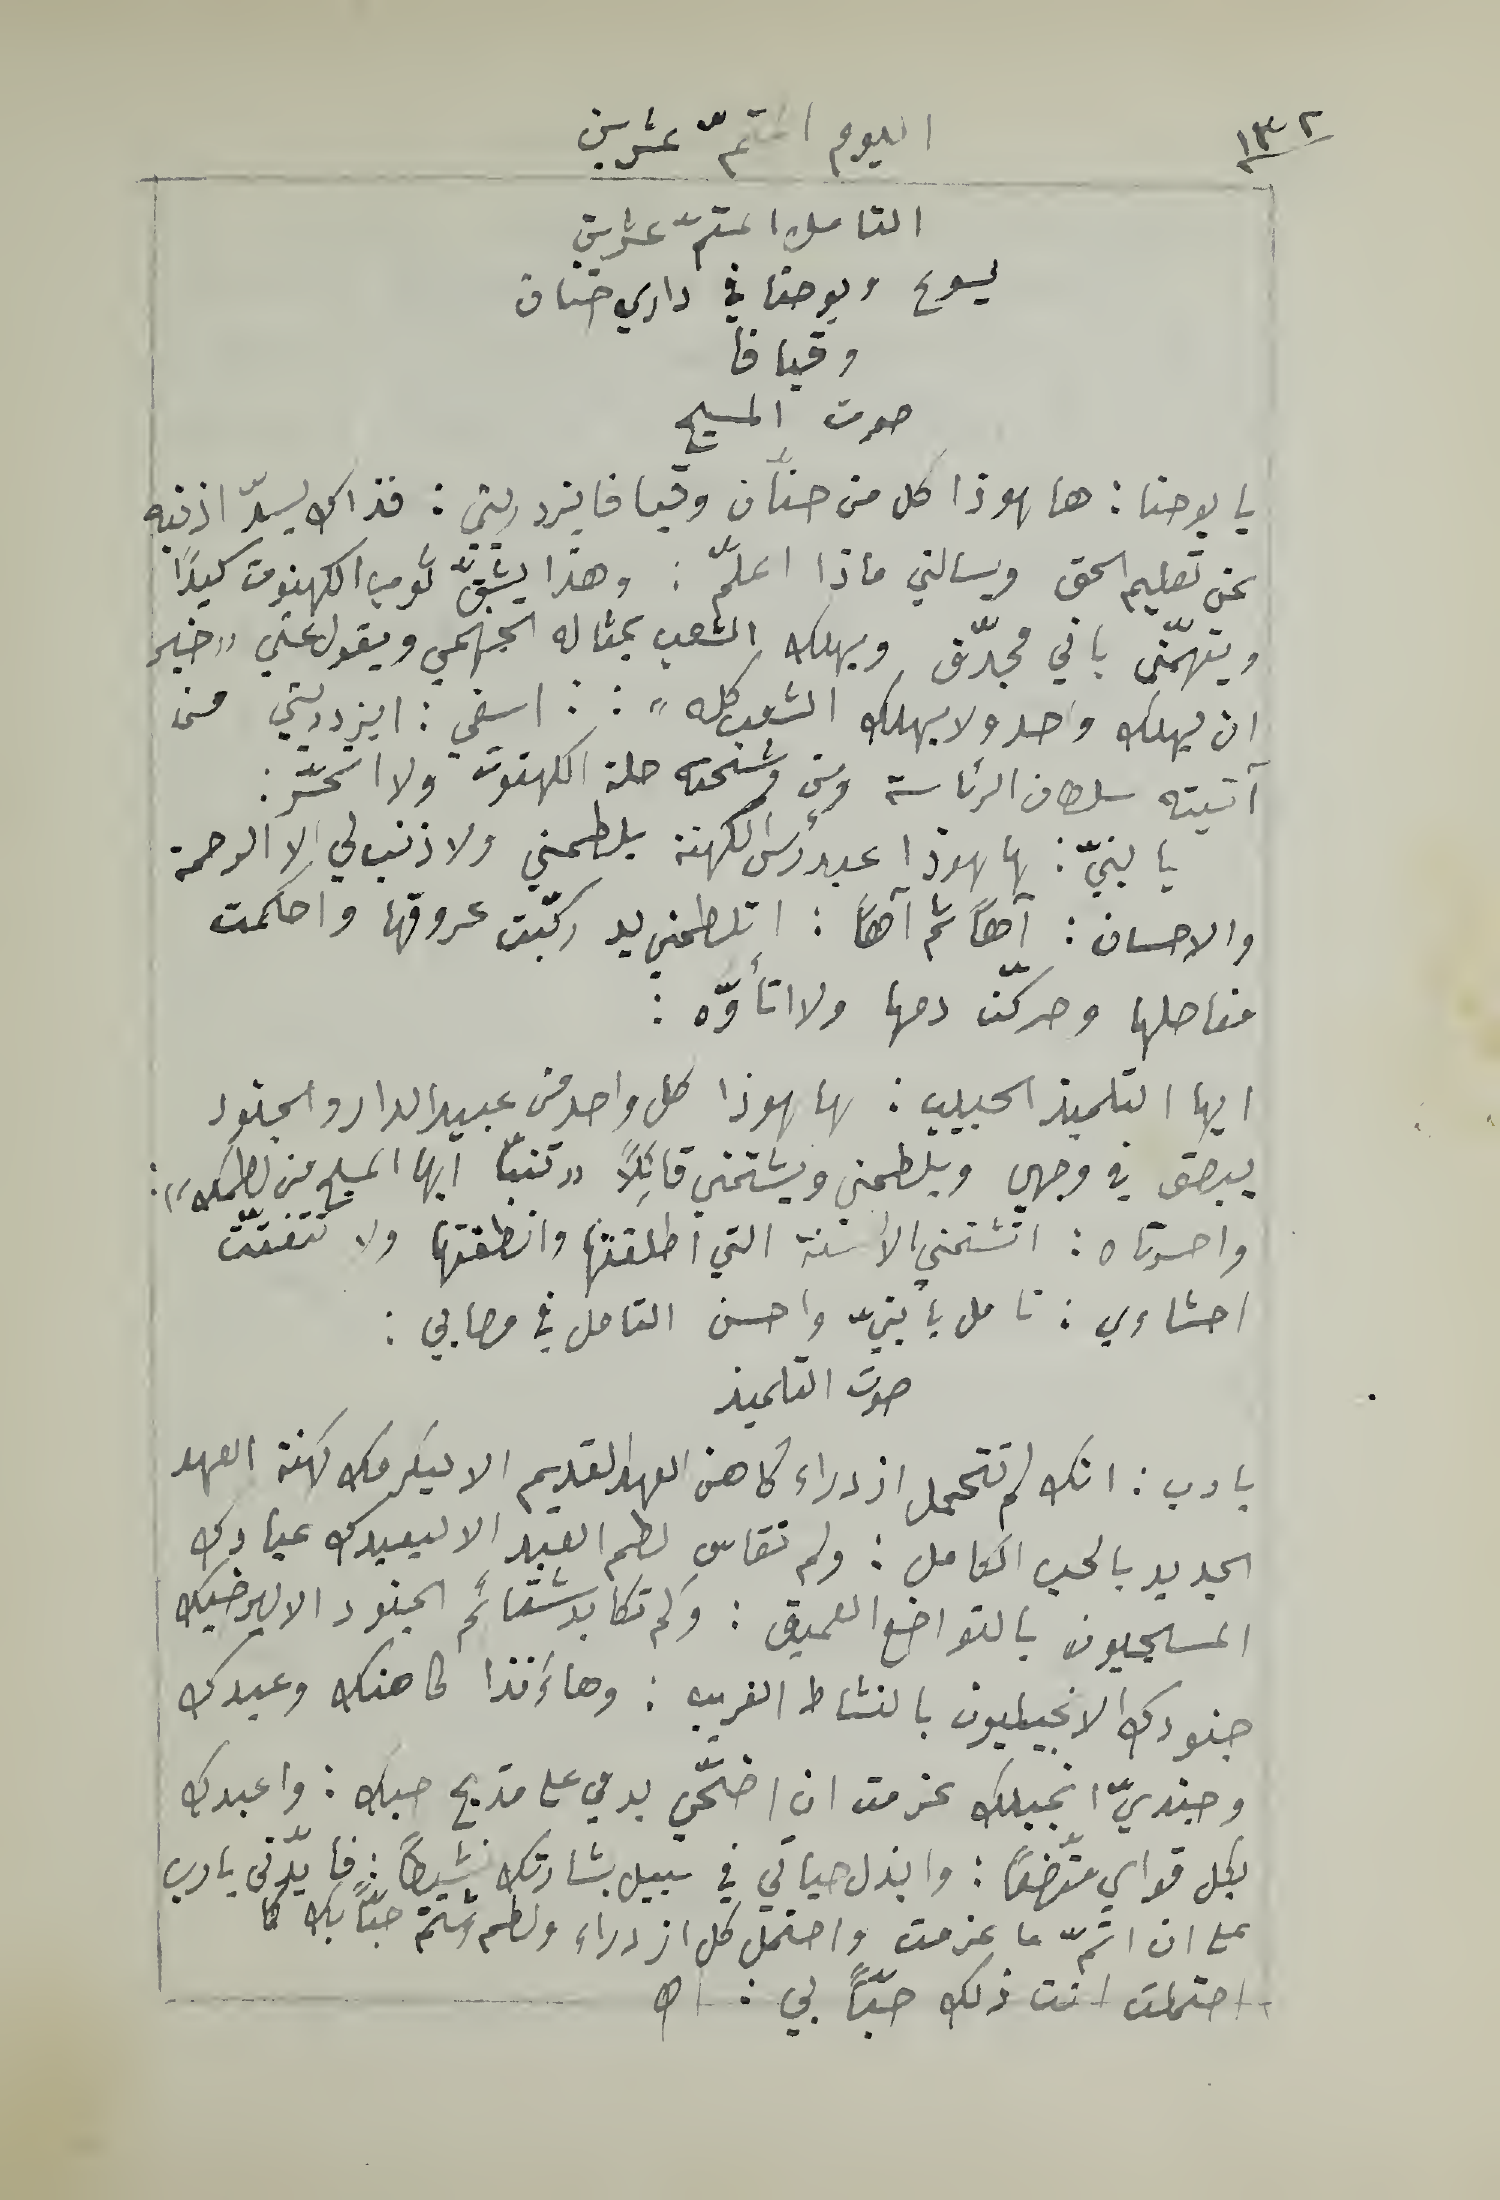 ١٣٢
اليوم المتمّ عشرين
التامل المتمّ عشرين
يسوع ويوحنا في داري حنان
وقيافا
صوت المسيح
يا يوحنا : ها هوذا كل من حنّان وقيافا يزدريني : فذاك يسدّ اذنيه
عن تعليم الحق ويسالني ماذا اعلّم : وهذا يشقّ ثوب الكهنوت كيدًا
ويتهمّني باني مجدّف ويهلك الشعب بمثاله الجهنمي ويقول عني « خير
ان يهلك واحد ولا يهلك الشعب كله » : : اسفي : ايزدريني من
آتيته سلطان الرئاسة ومن وشحته حلة الكهنوت ولا اتحسّر :
يا بنيّ : ها هوذا عبد رئس الكهنة يلطمني ولا ذنب لي الا الرحمة
والاحسان : آهاً ثم آهاً : اتلطمني يد ركّبت عروقها واحكمت
مفاصلها وحركّت دمها ولا اتأوّه :
ايها التلميذ الحبيب : ها هوذا كل واحد من عبيد الدار والجنود
يبصق في وجهي ويلطمني ويشتمني قائلاً « تنبّأ ايها المسيح من لطمك » :
واحسرتاه : اتشتمني الألسنة التي اطلقتها وانطقتها ولا تتفتّت
احشاءي : تامل يا بنيّ واحسن التامل في مصابي :
صوت التلميذ
يا رب : انك لم تتحمل ازدراء كاهن العهد القديم الا ليكرمك كهنة العهد
الجديد بالحب الكامل : ولم تقاسِ لطم العبد الا ليعبدك عبادك
المسيحيون بالتواضع العميق : ولم تكابد شتائم الجنود الا ليرضيك
جنودك الانجيليون بالنشاط الغريب : وهاءنذا كاهنك وعبدك
وجنديّ انجيلك عزمت ان اضحّي بدمي على مذبح حبك : واعبدك
بكل قواي متّضعًا : وابذل حياتي في سبيل بشارتك نشيطاً : فايّدني يا رب
على ان اتمّ ما عزمت واحتمل كل ازدراء ولطم وشتم حبّاً بك كما
احتملت انت ذلك حبّاً بي : اه